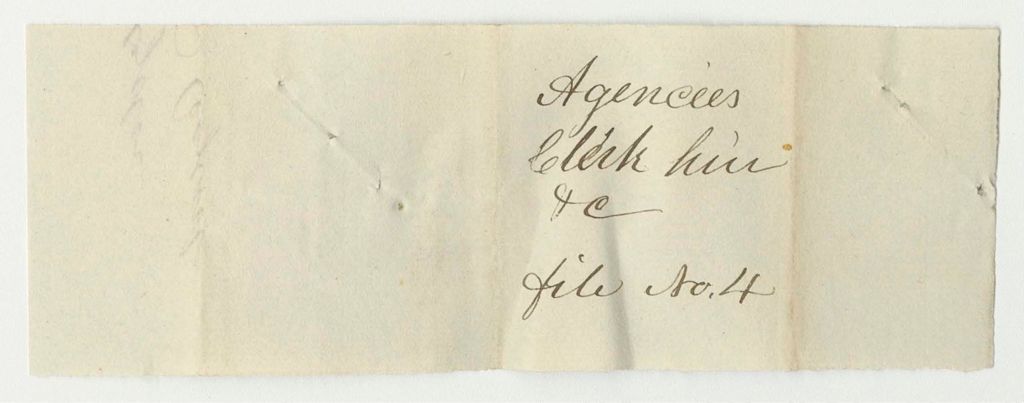 Agencies
Clerk hire
&c
file No. 4